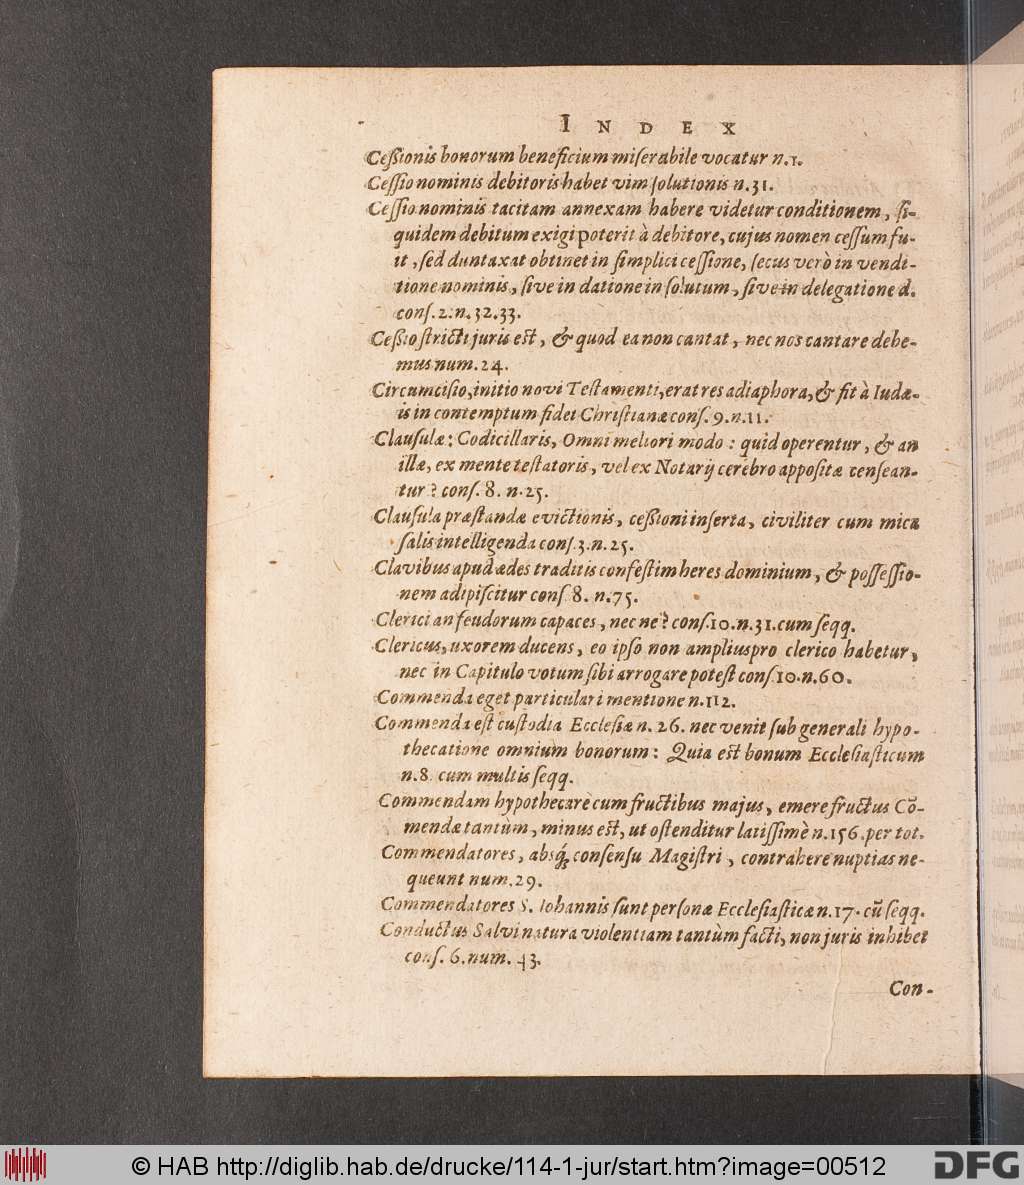 INDEX
Ceſſionis bonorum beneficium miſerabile vocatur n.1.
Ceſſio nominis debitoris habet vim ſolutionis n.31.
Ceſſio nominis tacitam annexam habere videtur conditionem, ſi-
quidem debitum exigi poterit à debitore, cujus nomen ceſſum fu-
it, ſed duntaxat obtinet in ſimplici ceſſione, ſecus verò in vendi-
tione nominis, ſive in datione in ſolutum, ſive in delegatione d.
conſ.2.n.32.33.
Ceſſio ſtricti juris eſt, & quod ea non cantat, nec nos cantare debe-
mus num.24.
Circumciſio, initio novi Teſtamenti, erat res adiaphora, & fit à Iudæ-
is in contemptum fidei Chriſtianæ conſ. 9.n.11.
Clauſulæ: Codicillaris, Omni meliori modo: quid operentur, & an
illæ, ex mente teſtatoris, vel ex Notarij cerebro appoſitæ cenſean-
tur? conſ. 8. n.25.
Clauſula præſtandæ evictionis, ceſſioni inſerta, civiliter cum mica
ſalis intelligenda conſ.3.n.25.
Clavibus apud ædes traditis confeſtim heres dominium, & poſſeſſio-
nem adipiſcitur conſ 8. n.75.
Clerici an feudorum capaces, nec ne? conſ.10.n.31.cum ſeqq.
Clericus, uxorem ducens, eo ipſo non ampliuspro clerico habetur,
nec in Capitulo votum ſibi arrogare poteſt conſ.10.n.60.
Commenda eget particulari mentione n.112.
Commenda eſt cuſtodia Eccleſiæ n. 26. nec venit ſub generali hypo-
thecatione omnium bonorum: Quia eſt bonum Eccleſiaſticum
n.8. cum multis ſeqq.
Commendam hypothecare cum fructibus majus, emere fructus Cō-
mendæ tantùm, minus eſt, ut oſtenditur latiſſimè n.156.per tot.
Commendatores, absq́; conſenſu Magiſtri, contrahere nuptias ne-
queunt num.29.
Commendatores S. Iohannis ſunt perſonæ Eccleſiaſticæ n.17. cū ſeqq.
Conductus Salvi natura violentiam tantùm facti, non juris inhibet
conſ. 6. num. 43.
Con-
© HAB http://diglib.hab.de/drucke/114-1-jur/start.htm?image=00512
DFG